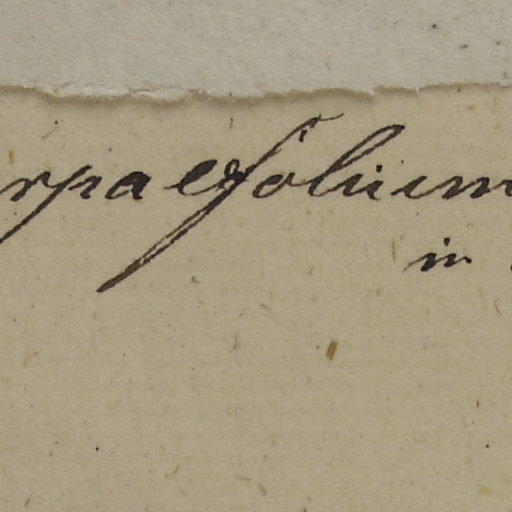 rpaefolium
in